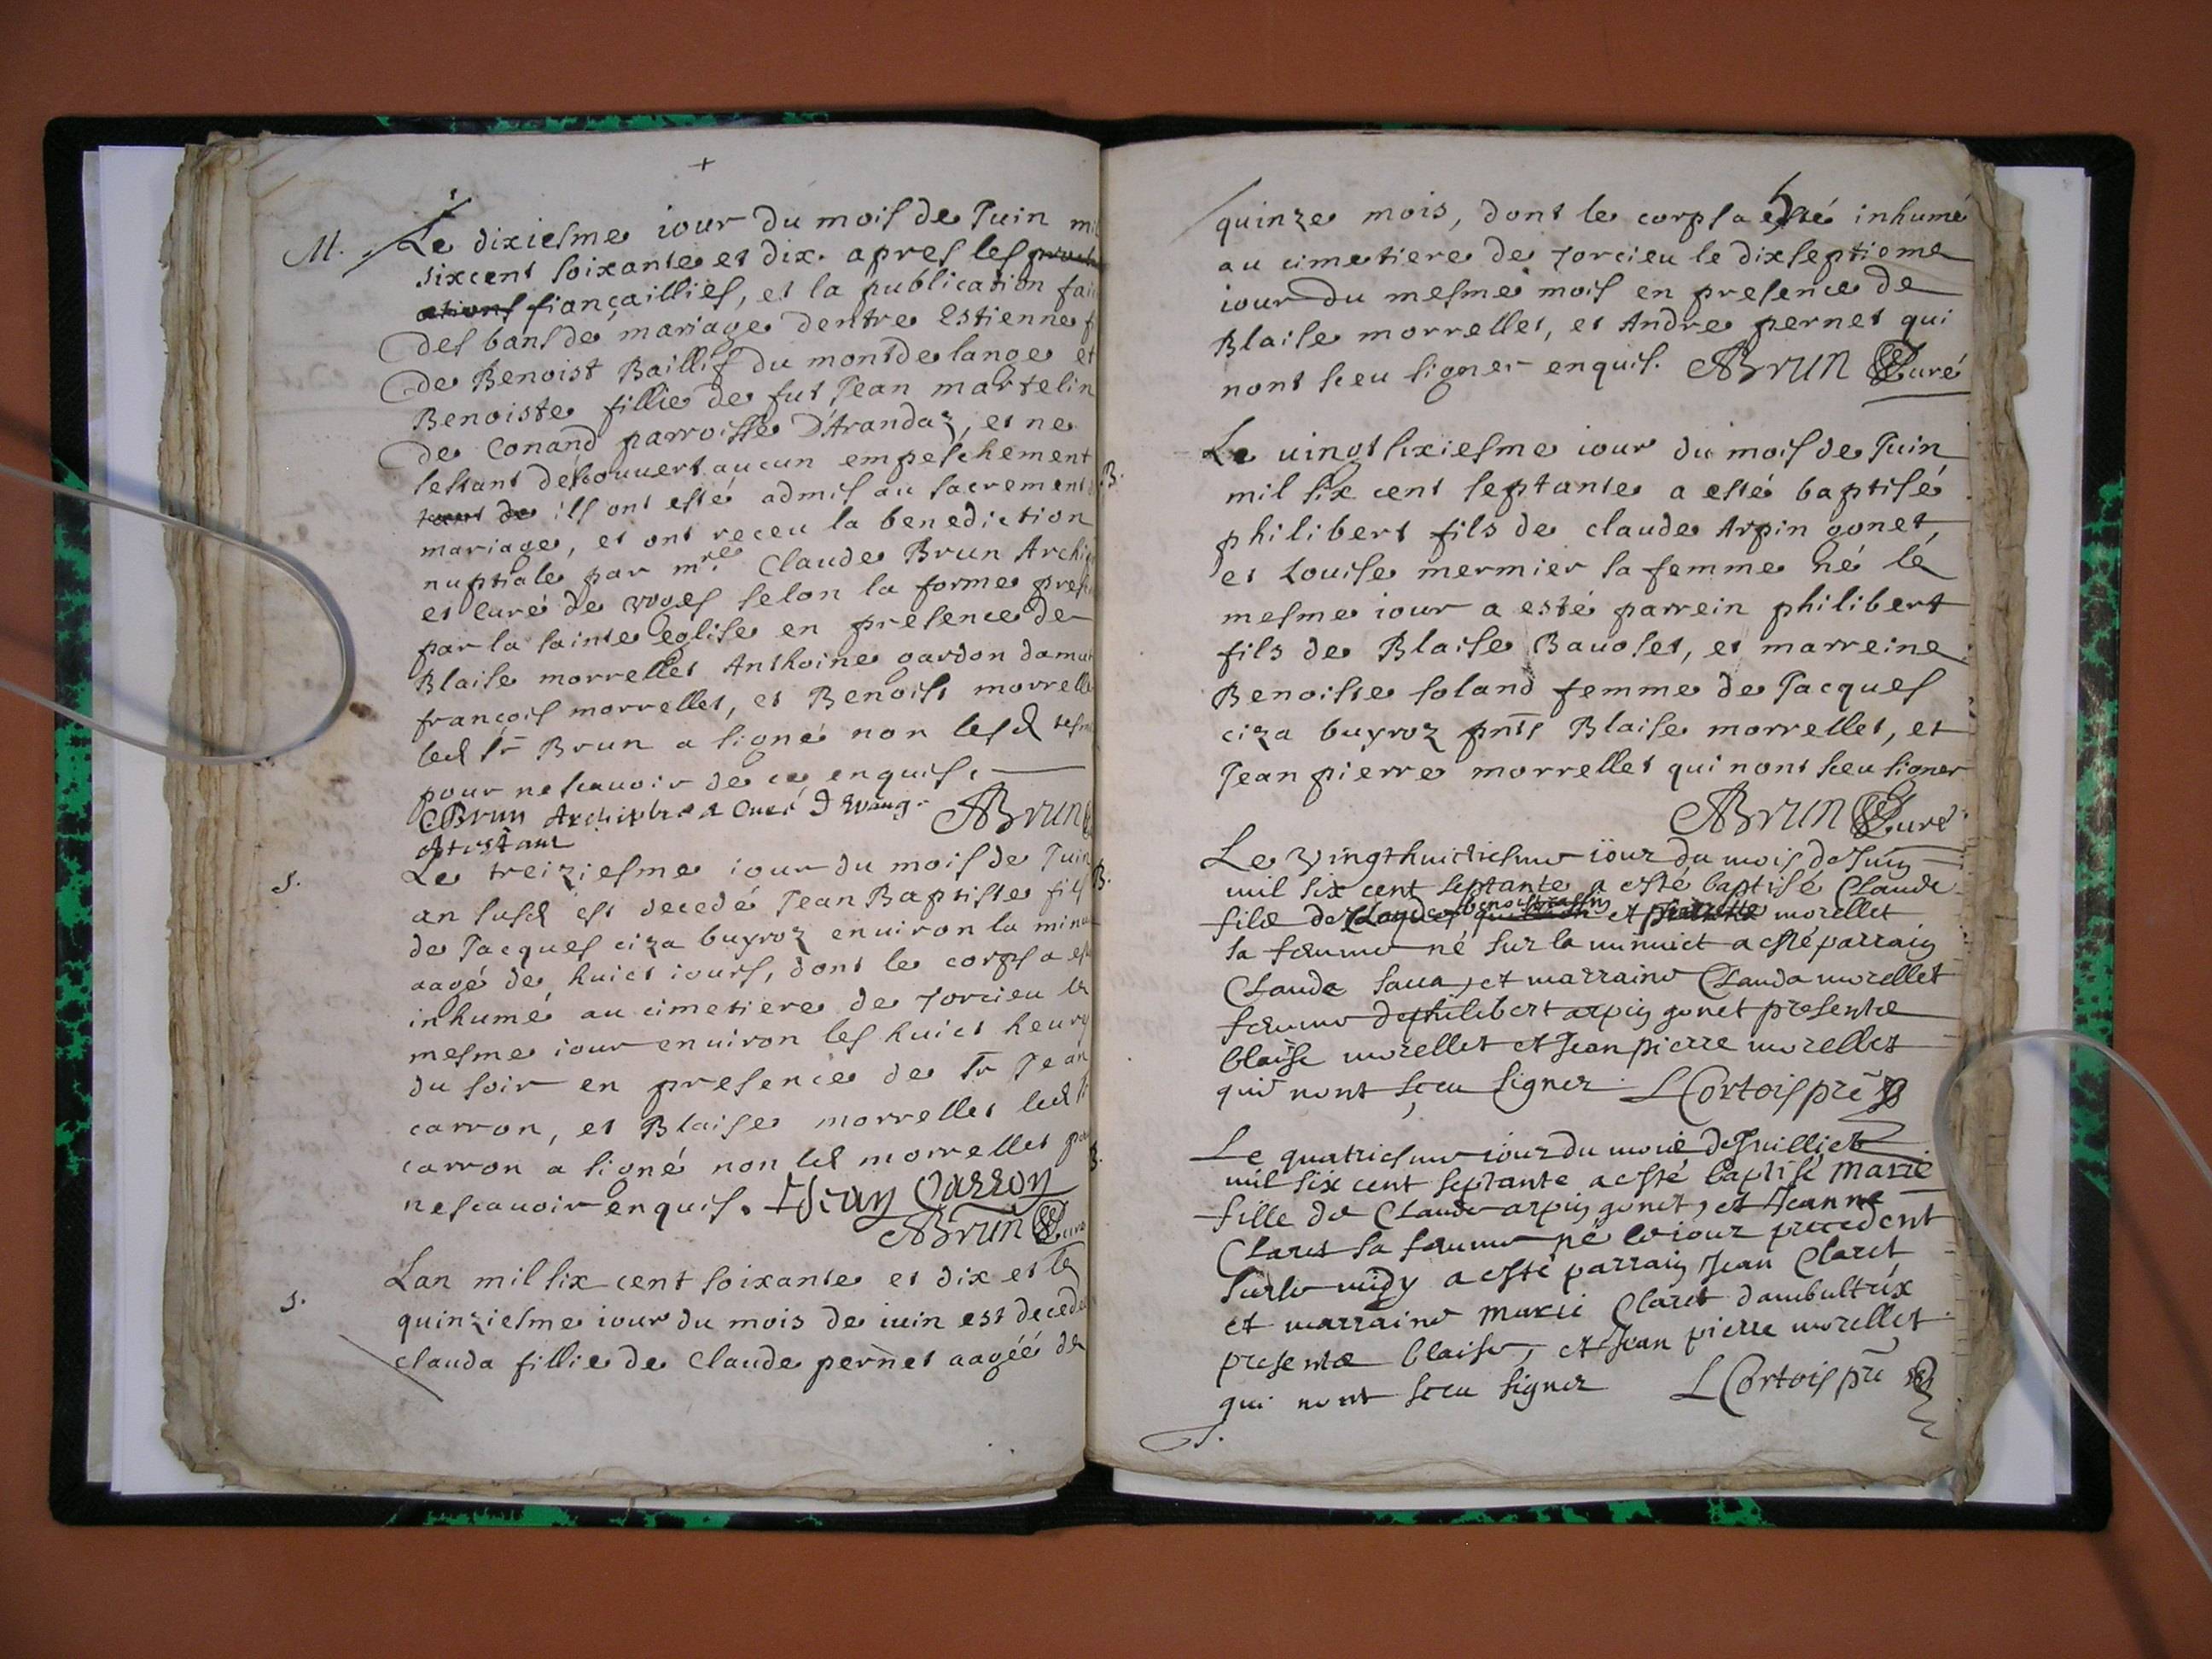 +
M. Le dixiesme iour du mois de Juin mil
sixcent soixante et dix. apres les
fiançaillies, et la publication faic
des bans de mariage dentre Estienne f
de Benoist Baillif du mont de lange et
Benoiste fillie de fut Jean martelin
de Conand parroisse D'Arandaz, et ne
sestant descouvert aucun empeschement
ils ont esté admis au sacrement d
mariage, et ont receu la benediction
nuptiale par mre Claude Brun Archip
et Curé de selon la forme pres
par la sainte eglise en presence de
Blaise morrellet Anthoine gardon damu
françois morrellet, et Benoist morrelle
led sr Brun a signé non lesd tesm
pour ne scauoir de ce enquis.
CBrun Curé ABrun

S. Le treiziesme iour du mois de Juin
an susd est decedé Jean Baptiste fils
de Jacques ciza buyroz enuiron la minu
aagé de huict iours, dont le corps a esté
inhumé au cimetiere de torcieu le
mesme iour enuiron les huict heurs
du soir en presence de sr Jean
carron, et Blaise morrellet led sr
carron a signé non led morrellet po
ne scauoir enquis. Jean Carron
ABrun Curé
Lan mil six cent soixante et dix et le
S. quinziesme iour du mois de iuin est decedé
clauda fillie de Claude pernet aagéé de
5
quinze mois, dont le corps a esté inhumé
au cimetiere de torcieu le dixseptieme
iour du mesme mois en presence de
Blaise morrellet, et Andre pernet qui
nont sceu signer enquis. ABrun Curé
Le uingt sixiesme iour du mois de Juin
B. mil six cent septante a esté baptisé
philibert fils de claude Arpin gonet,
et Louise mermier sa femme né le
mesme iour a esté parrein philibert
fils de Blaise Bauoset, et marreine
Benoiste soland femme de Jacques
ciza buyroz pnts Blaise morrellet, et
Jean pierre morrellet qui nont sceu signer
ABrun Curé
Le vingthuictiesme iour du mois de Juin
B. mil six cent septante a esté baptisé Claude
fils de benoist et pierrette morellet
sa femme né sur la minuict a esté parrain
Claude et marraine Clauda morellet
femme de philibert arpin gonet presente
blaise morellet et Jean pierre morellet
qui nont sceu signer LCortois pre
Le quatriesme iour du mois de Juilliet
B. mil six cent septante a esté baptisé Marie
fille de Claude arpin gonet, et Jeanne
Claret sa femme né le iour precedent
sur le midy a esté parrain Jean Claret
et marraine Marie Claret dambultrix
presente blaise, et Jean pierre morellet
qui nont sceu signer LCortois pre